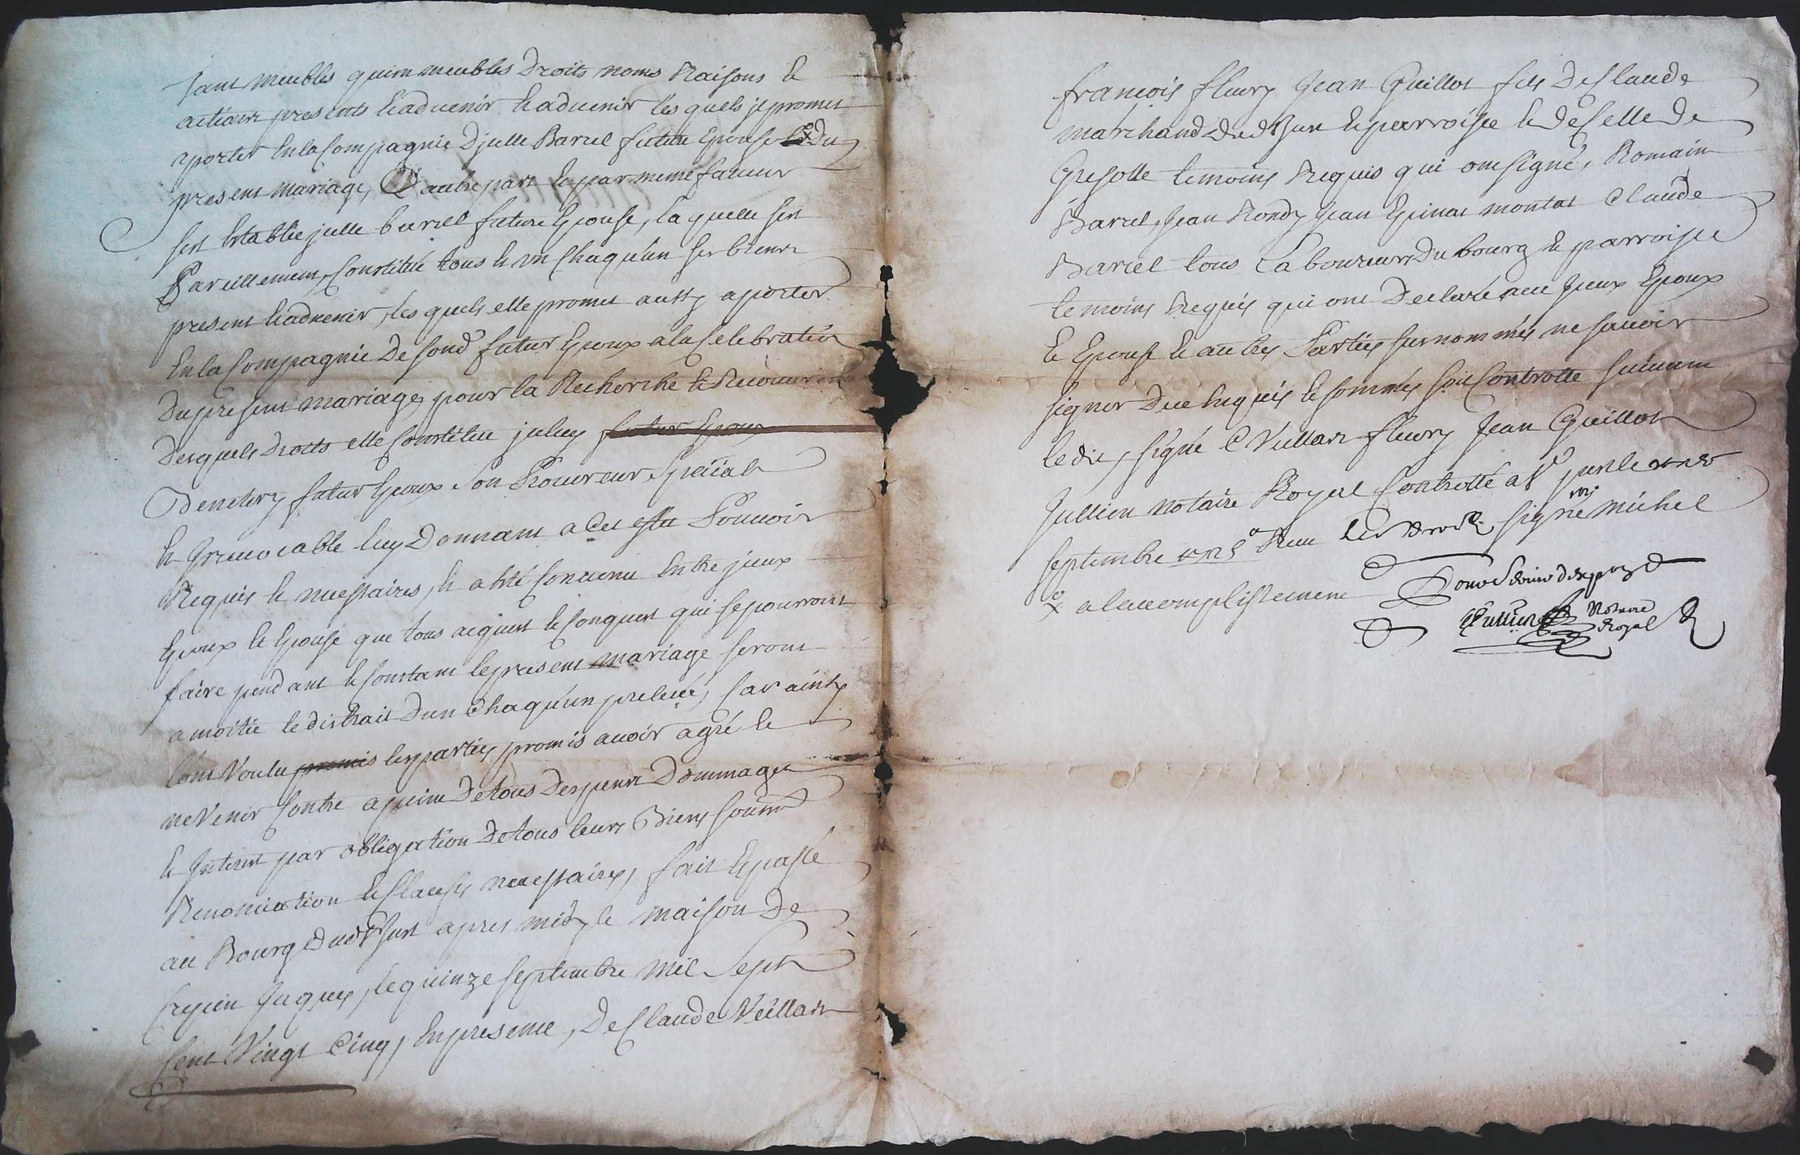 tant meubles quimmeubles Droits noms Raisons &
actions presents & aduenir & aduenir les quels il promet
aporter En la Compagnie Djulle Bariel future Epouse
present mariage, D'autre part & par meme faueur
sest Establie julle bariel future Epouse, la quelle sest
Parellement Constitué tous & un Chaqu'un ses biens
present & aduenir, les quels elle promet aussy aporter
En la Compagnie De sond futur Epoux a la Celebration
Du present mariage, pour la Recherche & Recouurement
Desquels Droits elle Constitue futur Epoux
Denatory futur Epoux son Procureur Special
& Irreuocable luy Donnant a Cet effet Pouuoir
Requis & necessaires, & a été Conuenu Entre jceux
Epoux & Epouse que tous aquest & Conquest qui se pourront
faire pendant & Constant le present mariage seront
a moitié & distrait d'un Chaqu'un preleué, Car ainsy
l'ont Voulu promis les parties promis auoir agré &
ne Venir Contre a peine De tous Despens Dommages
& Interest par obligation De tous leurs Biens soumis
Renonciation & Clauses necessaires, fait & passé
au Bourg Dud apres midy & maison De
Crepien Jaques, le quinze septembre mil Sept
Cent Vingt Cinq, En presence, De Claude Veillas
francois fleury Jean Guillot fils De Claude
marchand Dud & parroisse & De Celle De
Gresolle temoins Requis qui ont signé, Romain
Bariel, Jean Rondy Jean Epinat montat Claude
Bariel tous Laboureurs Du bourg & parroisse
temoins Requis qui ont Declaré auec jceux Epoux
& Epouse & autres Parties surnommés ne sauoir
signer De ce Enquis & sommés soit Controllé suiuant
le dit, signé C Veillas fleury Jean Guillot
Jullien notaire Royal Controllé a par le
septembre 1725 Receu les Droits signé michel
x a l'accomplissement
Jullien Notaire
Royal